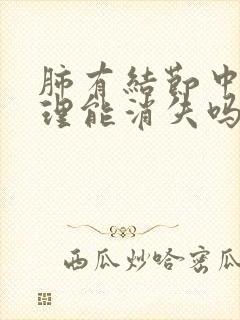 肺有結節中
理能消失吗
西瓜炒哈密瓜